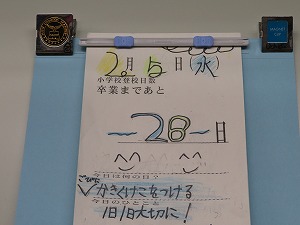 2月5日(水)
小学校登校日数
卒業まであと
~28~日
今日は何の日?
けこをつける
今日のひとこと
1日1日大切に!